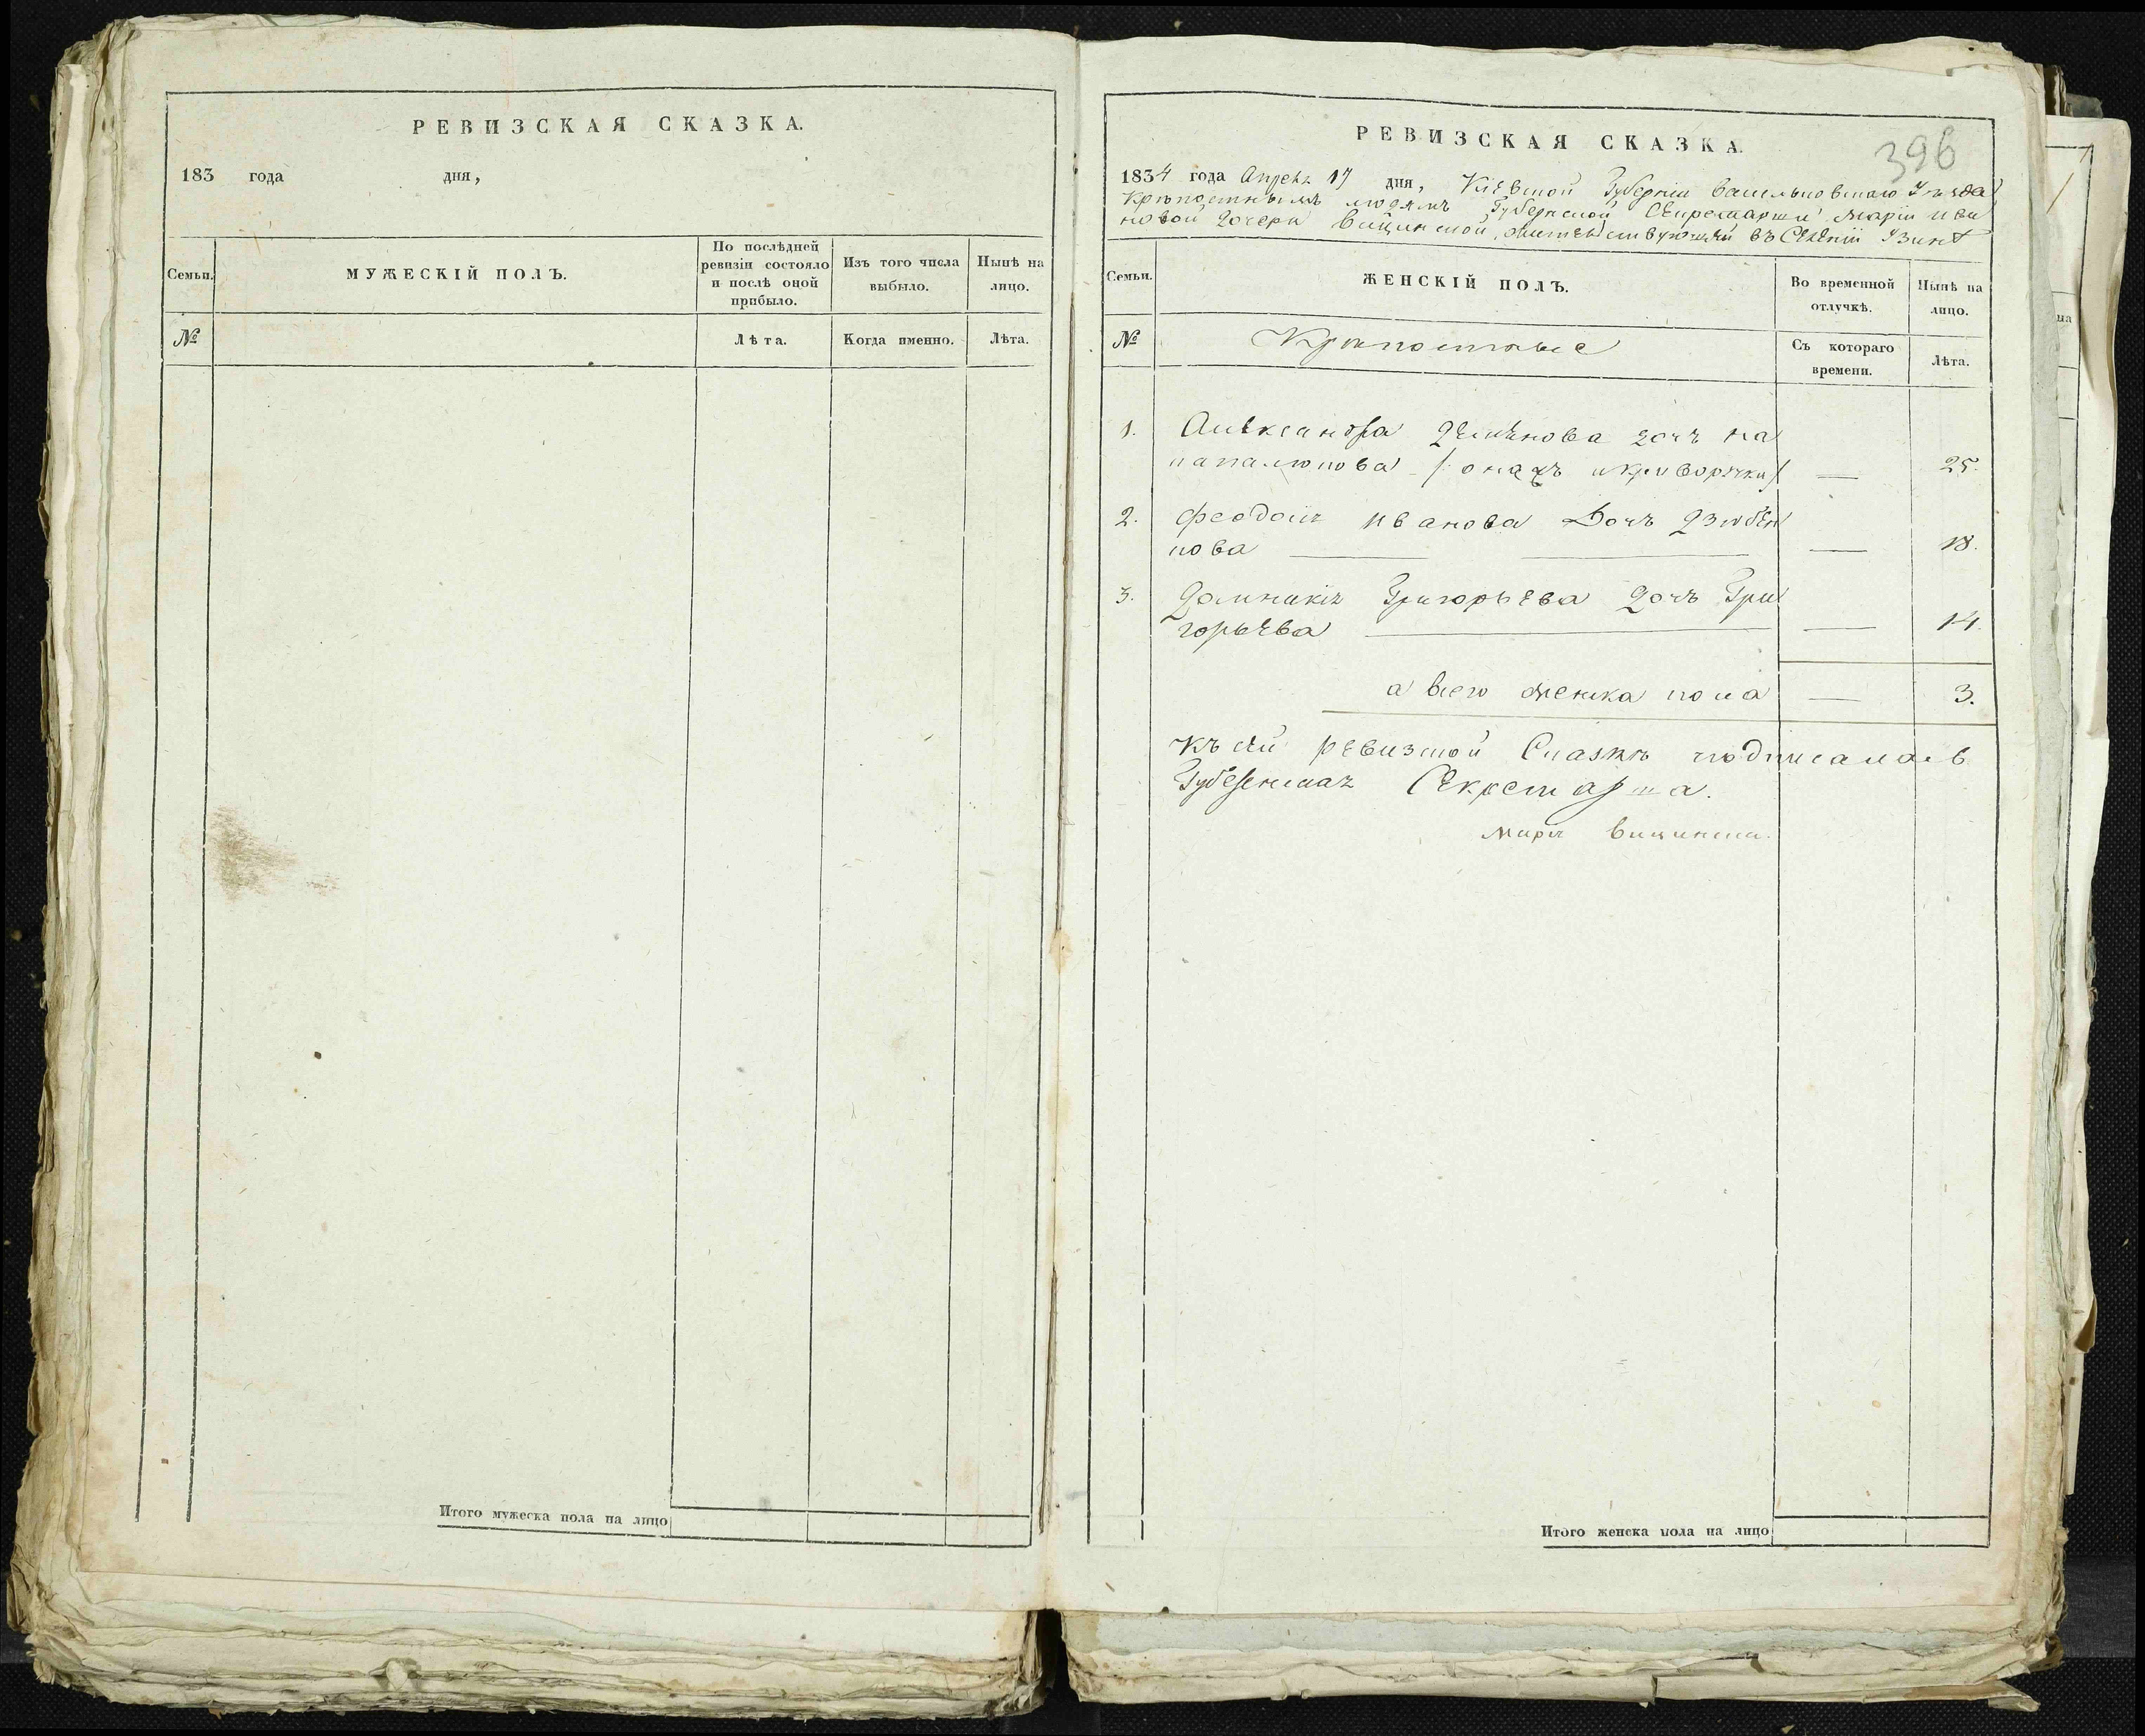 РЕВИЗСКАЯ СКАЗКА.
183 года дня,
Семьи.
МУЖЕСКІЙ ПОЛЪ.
По послѣдней ревизіи состояло и послѣ оной прибыло.
Изъ того числа выбыло.
Нынѣ на лицо.
№
Лѣта.
Когда именно.
Лѣта.
Итого мужеска пола на лицо
РЕВИЗСКАЯ СКАЗКА.
396
1834 года Апреля 17 дня, Кіевской Губерніи Васильковскаго Уѣзда
Крѣпостнымъ людямъ Губернской Секретарши Маріи Ива
новой дочери Вищинской, жительствующей въ Селеніи Узинѣ
Семьи.
ЖЕНСКІЙ ПОЛЪ.
Во временной отлучкѣ.
Нынѣ на лицо.
№
Крѣпостные
Съ котораго времени.
Лѣта.
1. Александра Деменова дочъ На
палюкова — 25.
2. Феодосия Иванова Дочъ Дзюбен
кова — 18.
3. Домникия Григорьева дочъ Гри
горьева — 14.
а всего женска пола — 3.
Къ сей ревизкой Сказкѣ подписалась
Губернская Секретарша.
Мария Вищинска.
Итого женска пола на лицо